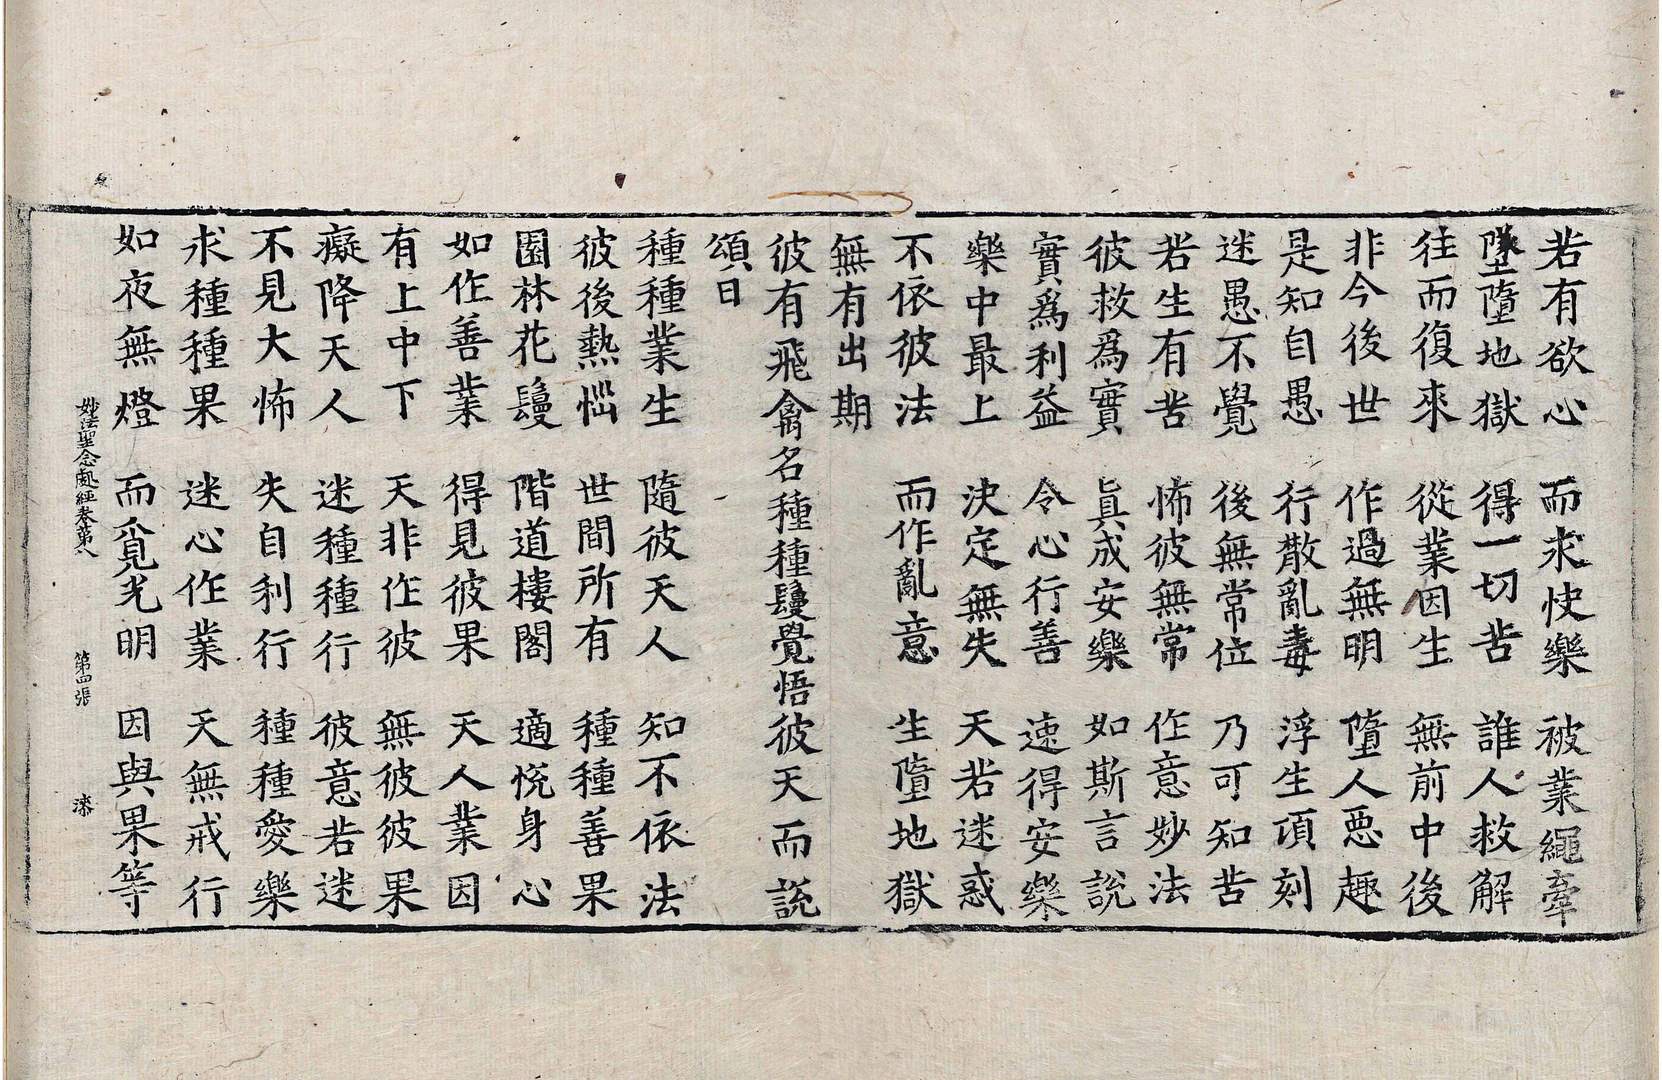 若有欲心　而求快樂　被業繩牽
墜墮地獄　得一切苦　誰人救解
往而復來　從業因生　無前中後
非今後世　作過無明　墮人惡趣
是知自愚　行散亂毒　浮生頃刻
迷愚不覺　後無常位　乃可知苦
若生有苦　怖彼無常　作意妙法
彼救為實　真成安樂　如斯言說
實為利益　令心行善　速得安樂
樂中最上　決定無失　天若迷惑
不依彼法　而作亂意　生墮地獄
無有出期
彼有飛禽名種種鬘覺悟彼天而說
頌曰
種種業生　隨彼天人　知不依法
彼後熱惱　世間所有　種種善果
園林花鬘　階道樓閣　適悅身心
如作善業　得見彼果　天人業因
有上中下　天非作彼　無彼彼果
癡降天人　迷種種行　彼意若迷
不見大怖　失自利行　種種愛樂
求種種果　迷心作業　天無戒行
如夜無燈　而覓光明　因與果等
妙法聖念處經卷第八　第四張　漆